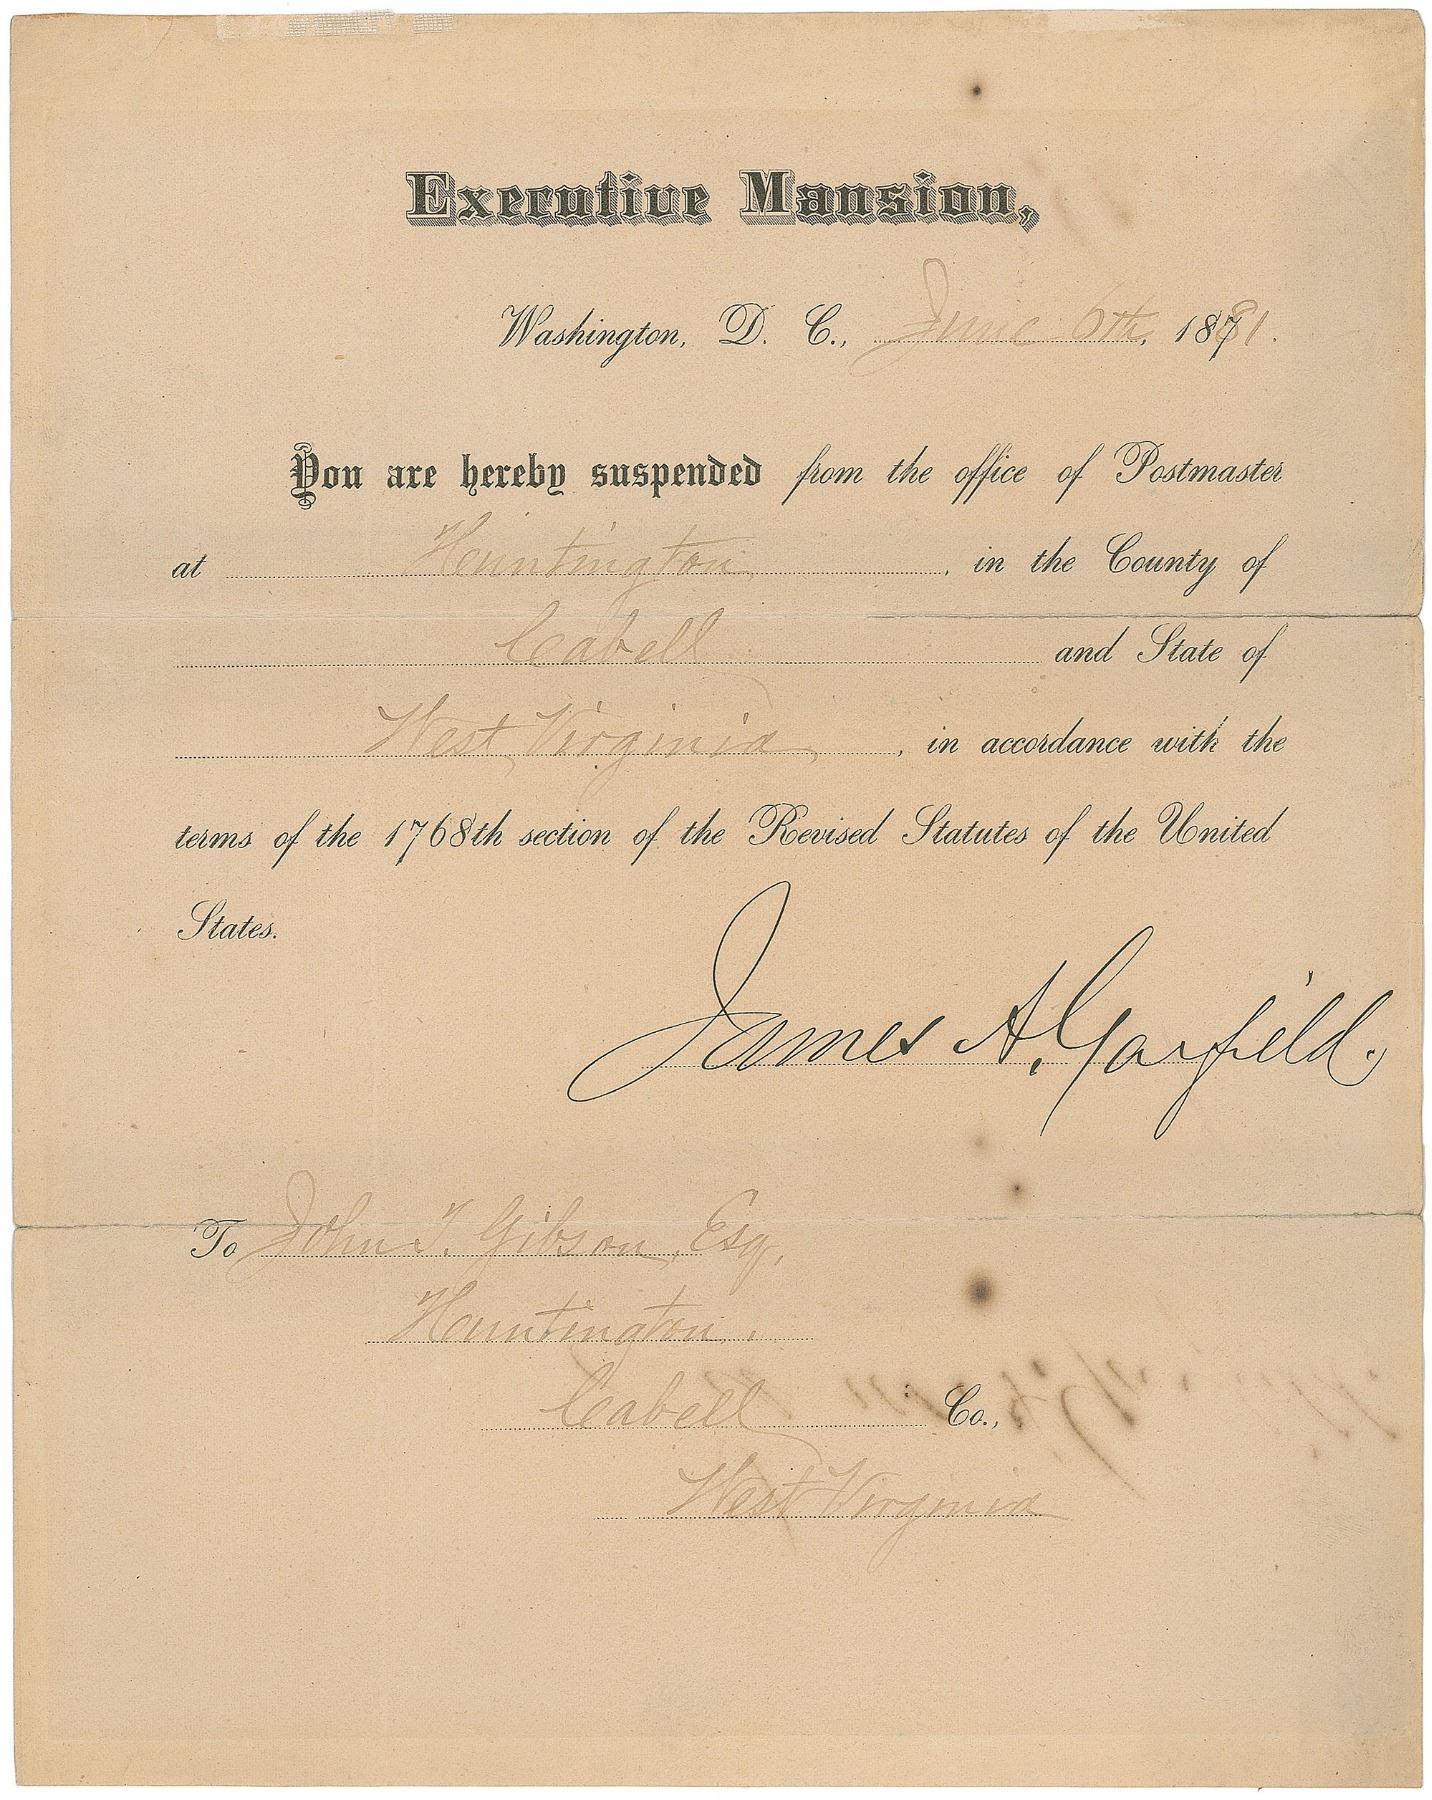 Executive Mansion,
Washington, D. C., June 6th, 1881.
You are hereby suspended from the office of Postmaster
at Huntington, in the County of
Cabell and State of
West Virginia, in accordance with the
terms of the 1768th section of the Revised Statutes of the United
States.
James A. Garfield.
To John T. Gibson, Esq,
Huntington.
Cabell Co.,
West Virginia